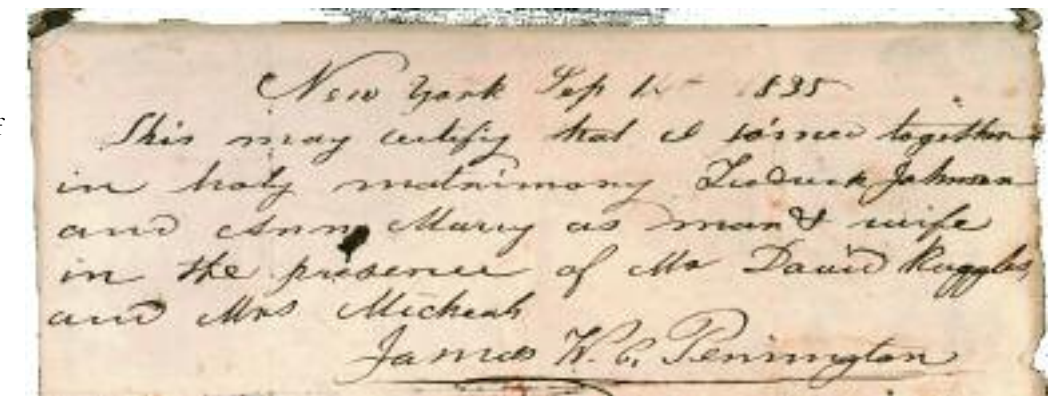 New York Sep
f
This may certify that I joined together
in holy matrimony Fredrick Johnson
and Anna Murry as man & wife
in the presence of Mr David Ruggles
and Mrs Micheals
James W. C. Pennington